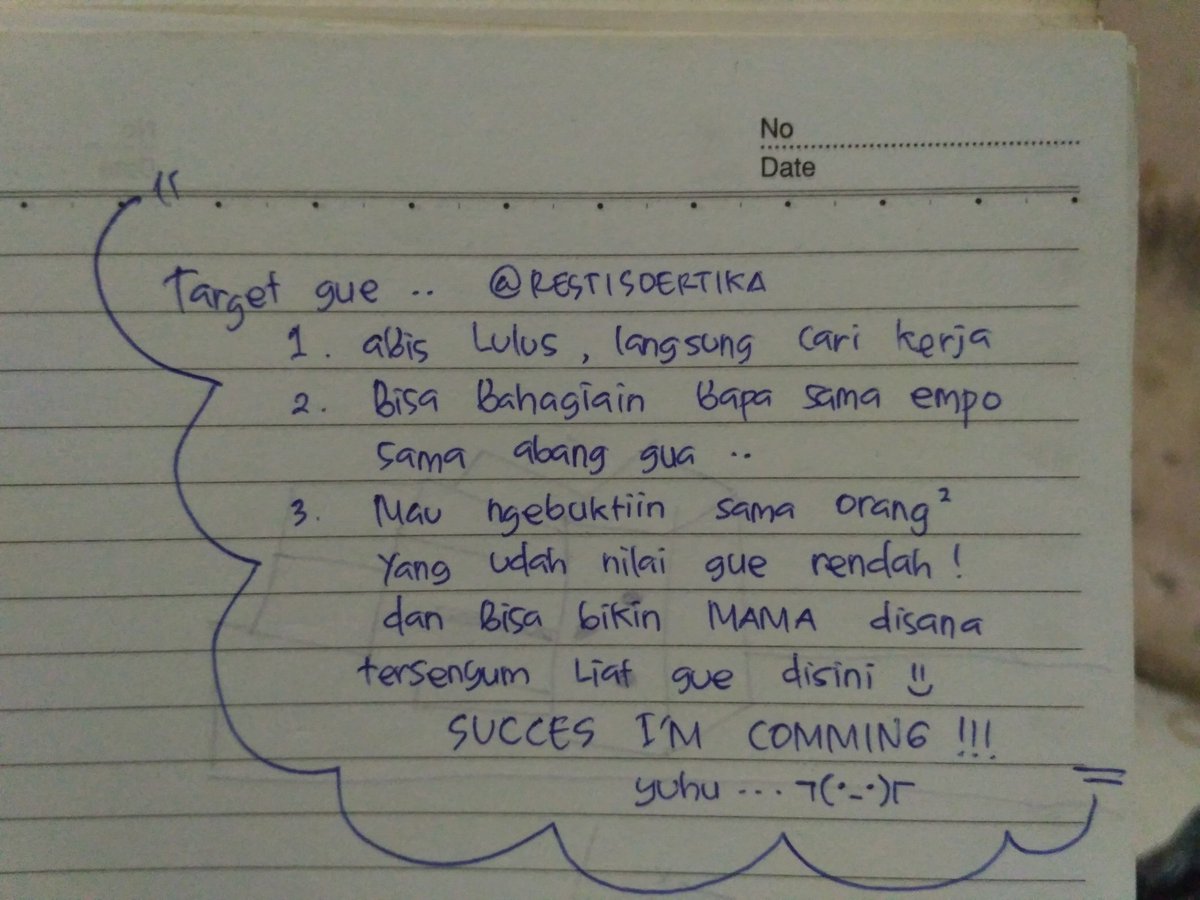 No
Date
Target gue .. @RESTISDERTIKA
1. abis Lulus, langsung cari kerja
2. Bisa Bahagiain Bapa sama empo
sama abang gua ..
3. Mau ngebuktiin sama orang²
yang udah nilai gue rendah!
dan Bisa bikin MAMA disana
tersenyum Liat gue disini
SUCCES I'M COMMING !!!
yuhu ... ¬(•_•)г